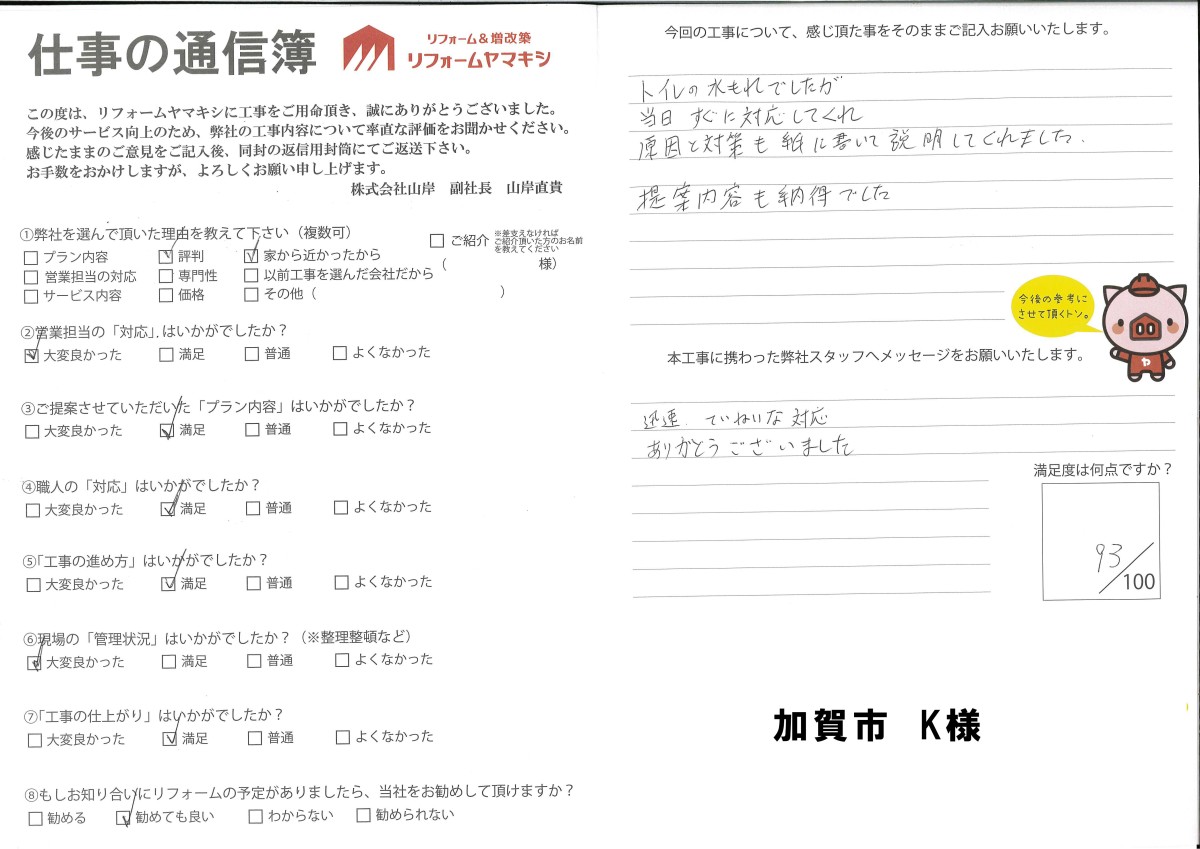 仕事の通信簿
リフォーム&増改築
リフォームヤマキシ
この度は、リフォームヤマキシに工事をご用命頂き、誠にありがとうございました。
今後のサービス向上のため、弊社の工事内容について率直な評価をお聞かせください。
感じたままのご意見をご記入後、同封の返信用封筒にてご返送下さい。
お手数をおかけしますが、よろしくお願い申し上げます。
株式会社山岸 副社長 山岸直貴
①弊社を選んで頂いた理由を教えて下さい（複数可）
□ プラン内容 ☑ 評判 ☑ 家から近かったから
□ 営業担当の対応 □ 専門性 □ 以前工事を選んだ会社だから
□ サービス内容 □ 価格 □ その他（ ）
□ ご紹介 ※差支えなければ
ご紹介頂いた方のお名前
を教えてください
（ 様）
②営業担当の「対応」はいかがでしたか？
☑ 大変良かった □ 満足 □ 普通 □ よくなかった
③ご提案させていただいた「プラン内容」はいかがでしたか？
□ 大変良かった ☑ 満足 □ 普通 □ よくなかった
④職人の「対応」はいかがでしたか？
□ 大変良かった ☑ 満足 □ 普通 □ よくなかった
⑤「工事の進め方」はいかがでしたか？
□ 大変良かった ☑ 満足 □ 普通 □ よくなかった
⑥現場の「管理状況」はいかがでしたか？（※整理整頓など）
☑ 大変良かった □ 満足 □ 普通 □ よくなかった
⑦「工事の仕上がり」はいかがでしたか？
□ 大変良かった ☑ 満足 □ 普通 □ よくなかった
⑧もしお知り合いにリフォームの予定がありましたら、当社をお勧めして頂けますか？
□ 勧める ☑ 勧めても良い □ わからない □ 勧められない
今回の工事について、感じ頂た事をそのままご記入お願いいたします。
トイレの水もれでしたが
当日 すぐに対応してくれ
原因と対策も紙に書いて説明してくれました.
提案内容も納得でした
今後の参考に
させて頂くトン。
ヤ
本工事に携わった弊社スタッフへメッセージをお願いいたします。
迅速. ていねいな対応
ありがとうございました
満足度は何点ですか？
93/100
加賀市 K様